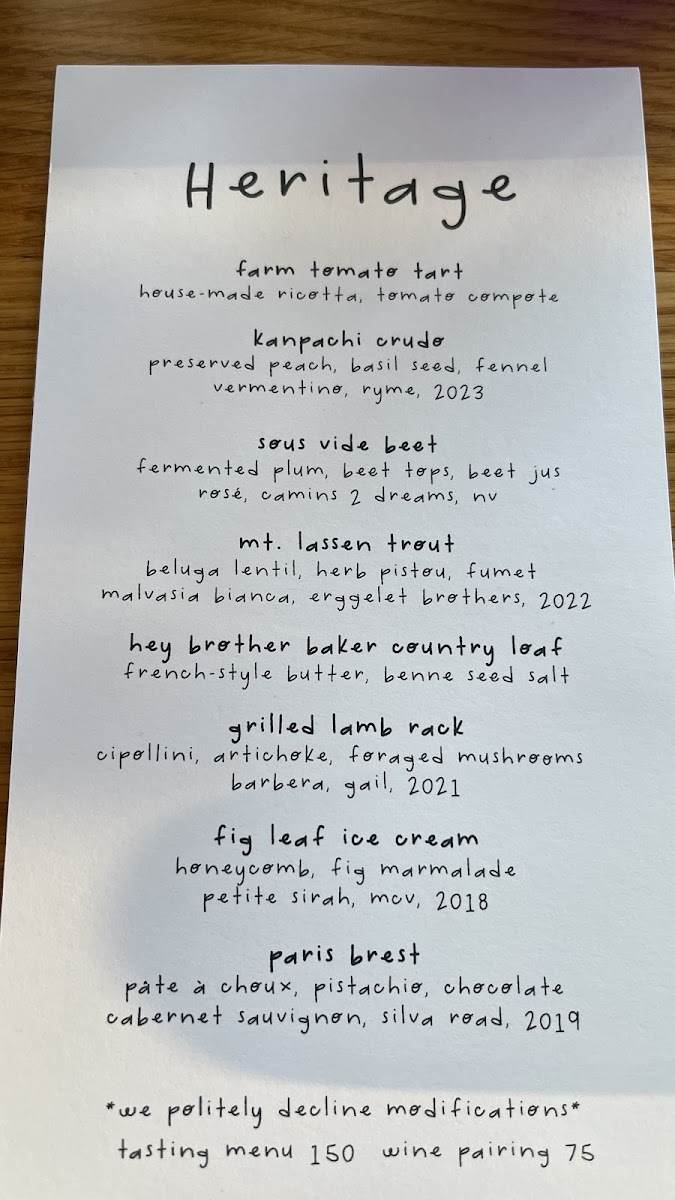 Heritage
farm tomato tart
house-made ricotta, tomato compote
kanpachi crudo
preserved peach, basil seed, fennel
vermentino, ryme, 2023
sous vide beet
fermented plum, beet tops, beet jus
rosé, camins 2 dreams, nv
mt. lassen trout
beluga lentil, herb pistou, fumet
malvasia bianca, erggelet brothers, 2022
hey brother baker country loaf
french-style butter, benne seed salt
grilled lamb rack
cipollini, artichoke, foraged mushrooms
barbera, gail, 2021
fig leaf ice cream
honeycomb, fig marmalade
petite sirah, mcv, 2018
paris brest
pâte à choux, pistachio, chocolate
cabernet sauvignon, silva road, 2019
*we politely decline modifications*
tasting menu 150 wine pairing 75